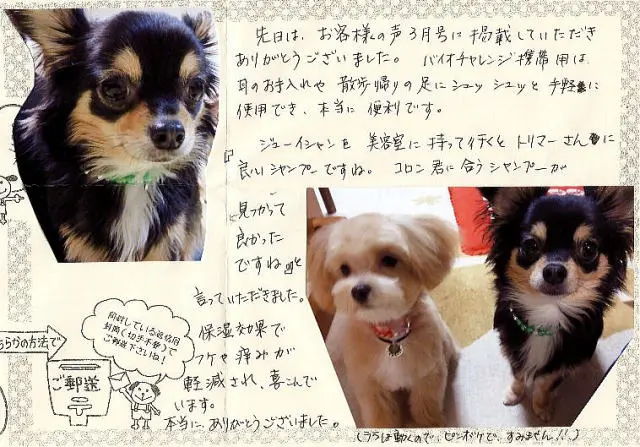 先日は、お客様の声3月号に掲載していただき
ありがとうございました。 バイオチャレンジ携帯用は、
耳のお手入れや 散歩帰りの足にシュッ シュッと 手軽に
使用でき、本当に 便利です。
ジューイシャンを 美容室に 持って行くと トリマーさんに
良いシャンプーですね。 コロン君に合うシャンプーが
見つかって
良かった
ですねと
言っていただきました。
保湿効果で
フケや痒みが
軽減され、喜こんで
います。
本当に、ありがとうございました。
同封している返信用
封筒(切手不要)で
ご郵送下さいね!
ちらかの方法で
ご郵送
(うちは動くので、ピンボケで、すみません!!)